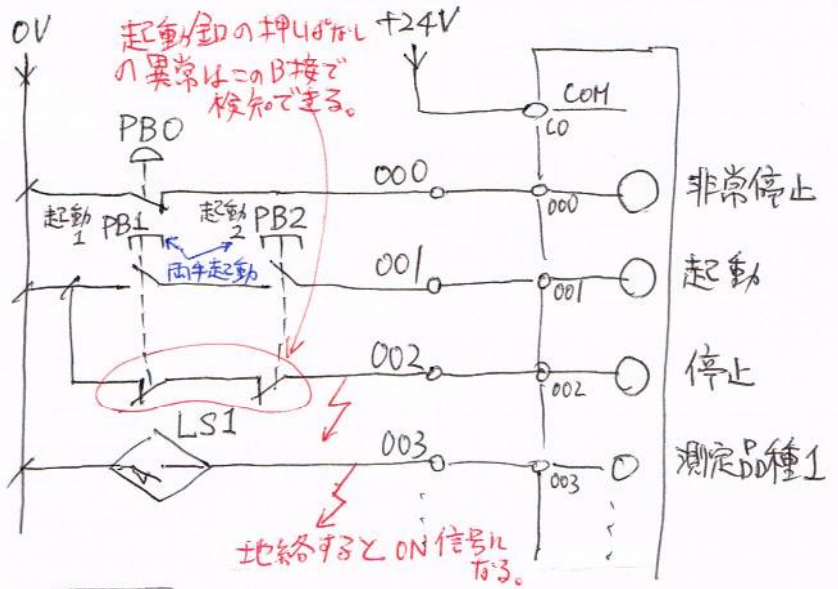 0V
起動釦の押しぱなし
の異常はこのB接で
検知できる。
+24V
COM
C0
PB0
000
000
非常停止
起動1
PB1
起動2
PB2
両手起動
001
001
起動
002
002
停止
LS1
003
003
測定品種1
地絡するとON信号に
なる。